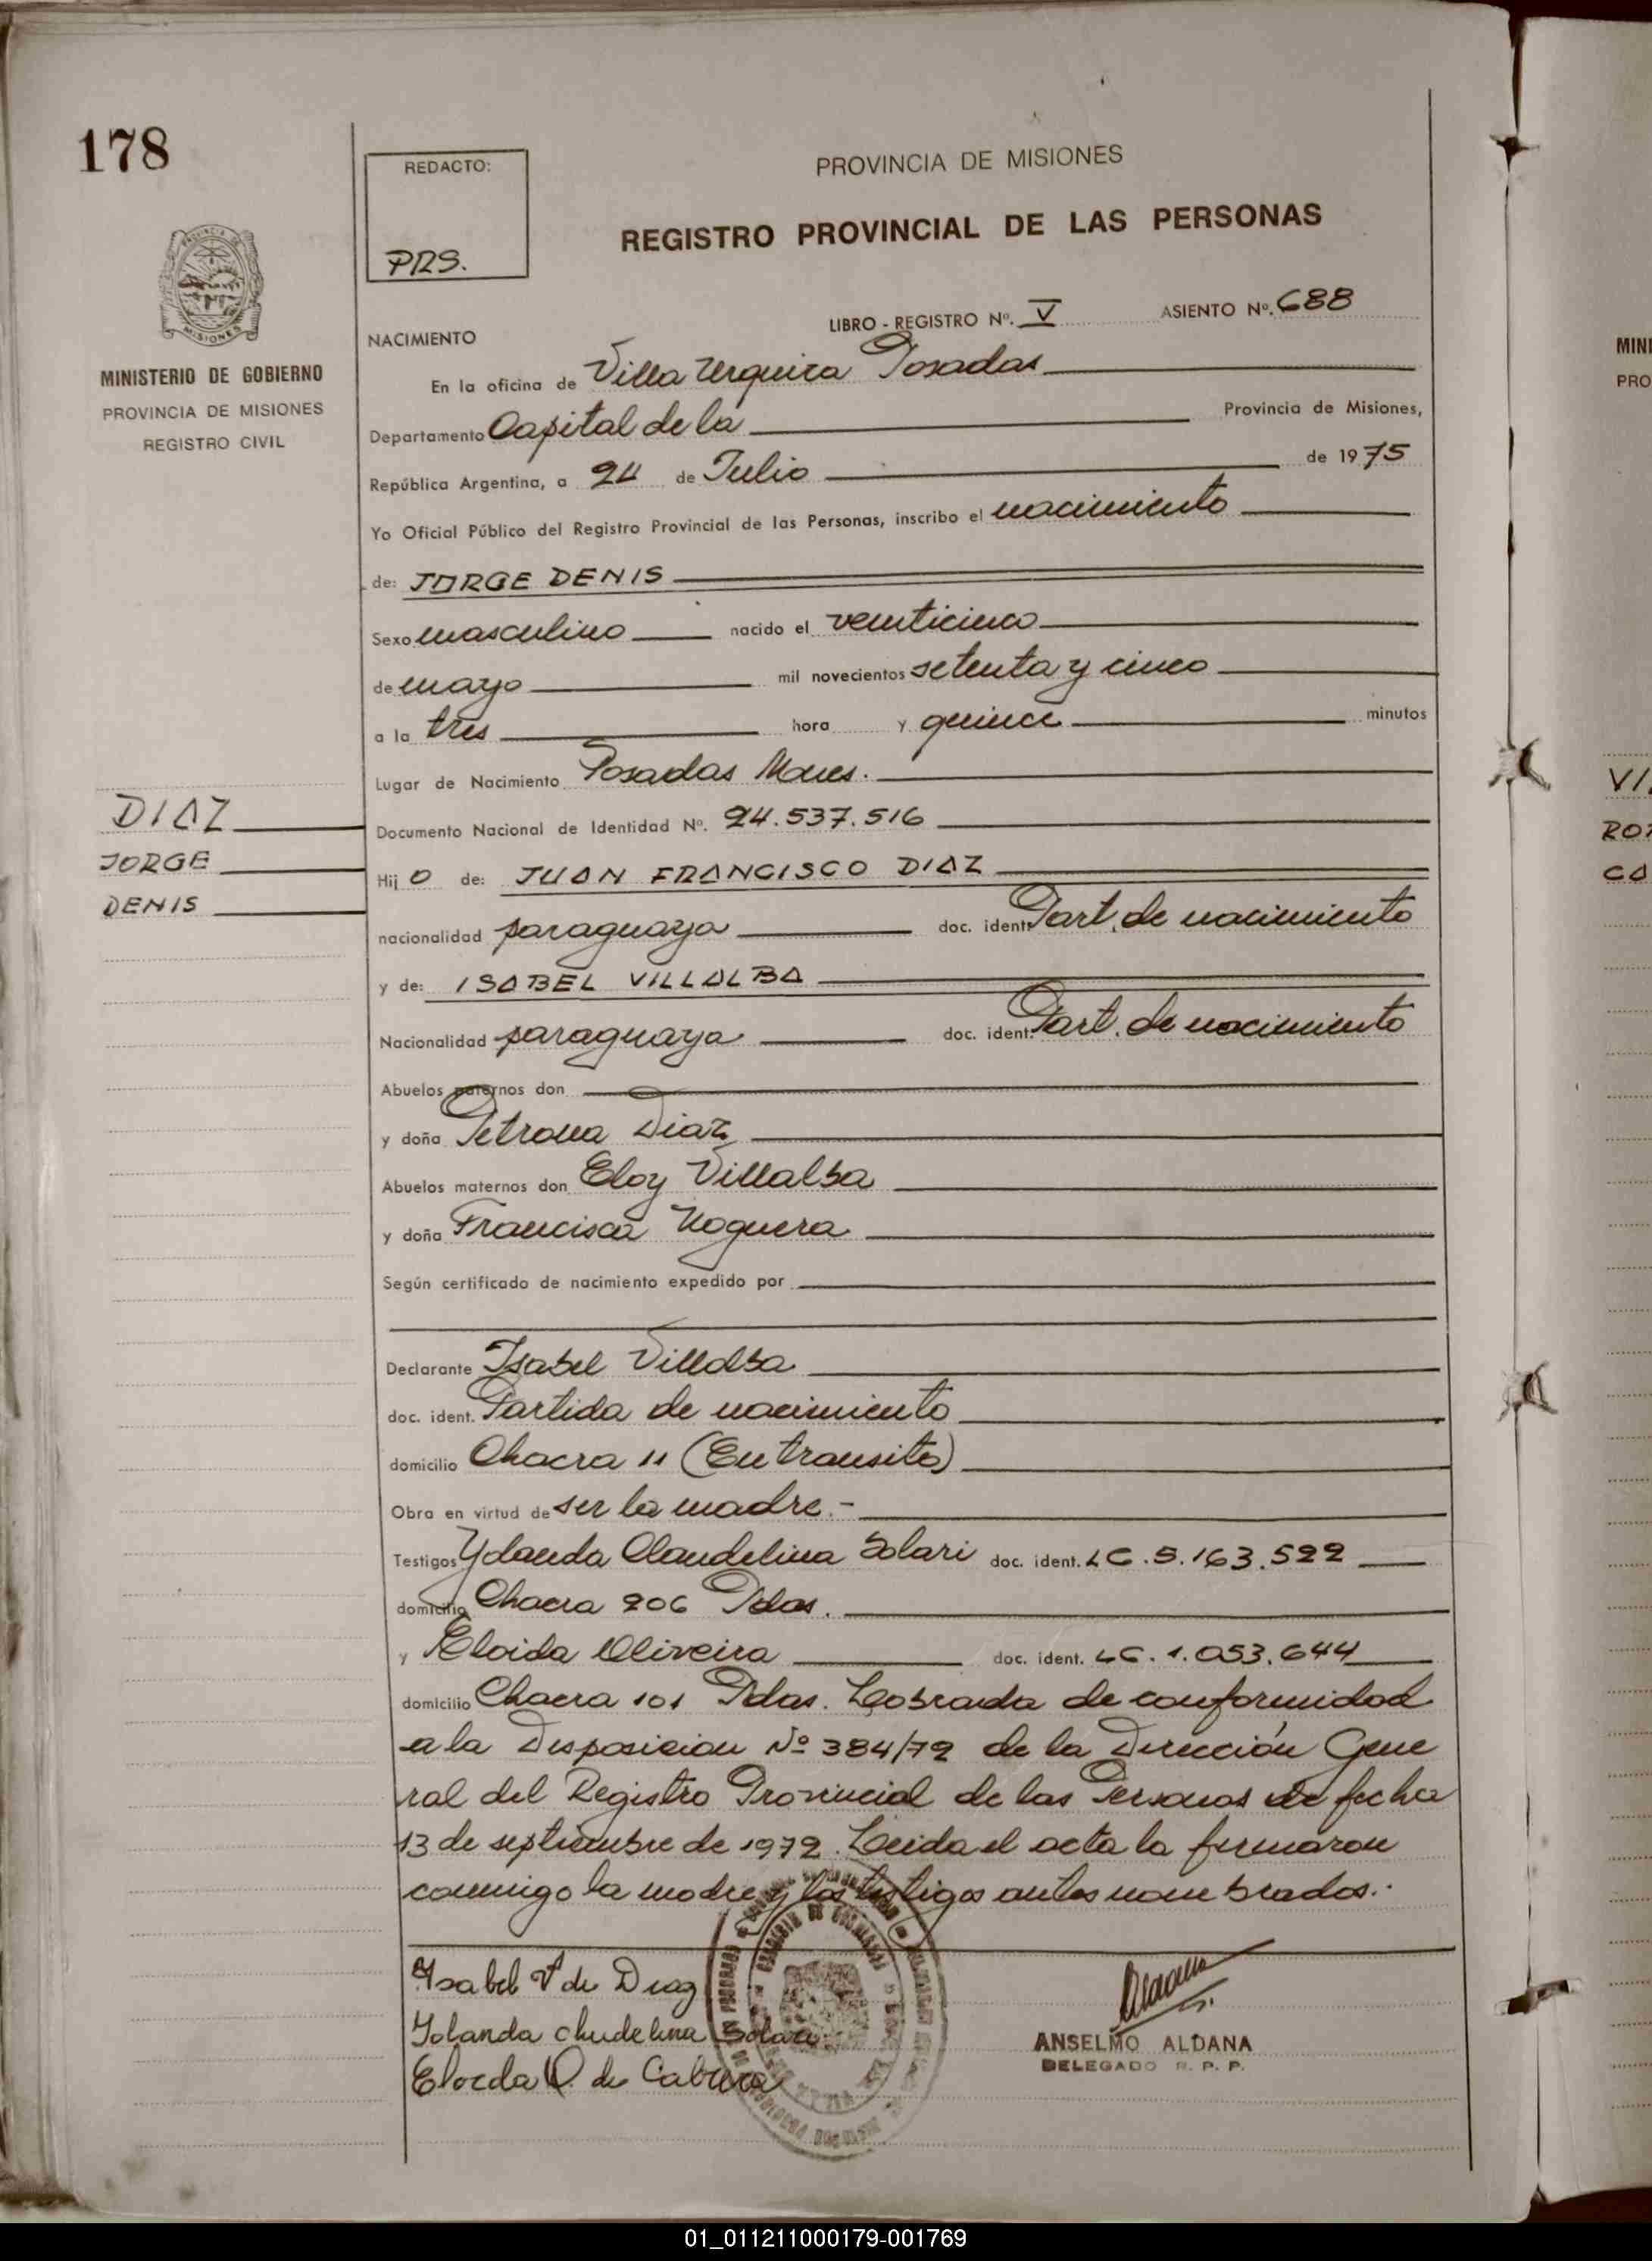 178
REDACTO:
PRS.
PROVINCIA DE MISIONES
REGISTRO PROVINCIAL DE LAS PERSONAS
LIBRO - REGISTRO Nº. V ASIENTO Nº. 688
MINISTERIO DE GOBIERNO
PROVINCIA DE MISIONES
REGISTRO CIVIL
NACIMIENTO
En la oficina de Villa Urquiza Posadas
Departamento Capital de la Provincia de Misiones,
República Argentina, a 24 de Julio de 1975
Yo Oficial Público del Registro Provincial de las Personas, inscribo el nacimiento
de: JORGE DENIS
Sexo masculino nacido el veinticinco
de mayo mil novecientos setenta y cinco
a la tres hora y quince minutos
Lugar de Nacimiento Posadas Mnes.
DIAZ
JORGE
DENIS
Documento Nacional de Identidad Nº. 24.537.516
Hij o de: JUAN FRANCISCO DIAZ
nacionalidad paraguaya doc. ident. Part. de nacimiento
y de: ISABEL VILLALBA
Nacionalidad paraguaya doc. ident. Part. de nacimiento
Abuelos paternos don
y doña Petrona Diaz
Abuelos maternos don Eloy Villalba
y doña Francisca Noguera
Según certificado de nacimiento expedido por
Declarante Isabel Villalba
doc. ident. Partida de nacimiento
domicilio Chacra 11 (En transito)
Obra en virtud de ser la madre.-
Testigos Yolanda Claudelina Solari doc. ident. LC. 5.163.522
domicilio Chacra 206 Pdas.
y Eloida Oliveira doc. ident. LC. 1.053.644
domicilio Chacra 101 Pdas. Labrada de conformidad
a la Disposicion Nº 384/72 de la Dirección Gene
ral del Registro Provincial de las Personas de fecha
13 de septiembre de 1972. Leida el acta la firmaron
conmigo la madre y los testigos antes nombrados.-
Isabel V de Diaz
Yolanda Solari
Eloida O de Cabrera
ANSELMO ALDANA
DELEGADO R. P. P.
MINI
PRO
VI
RO
CA
01_011211000179-001769